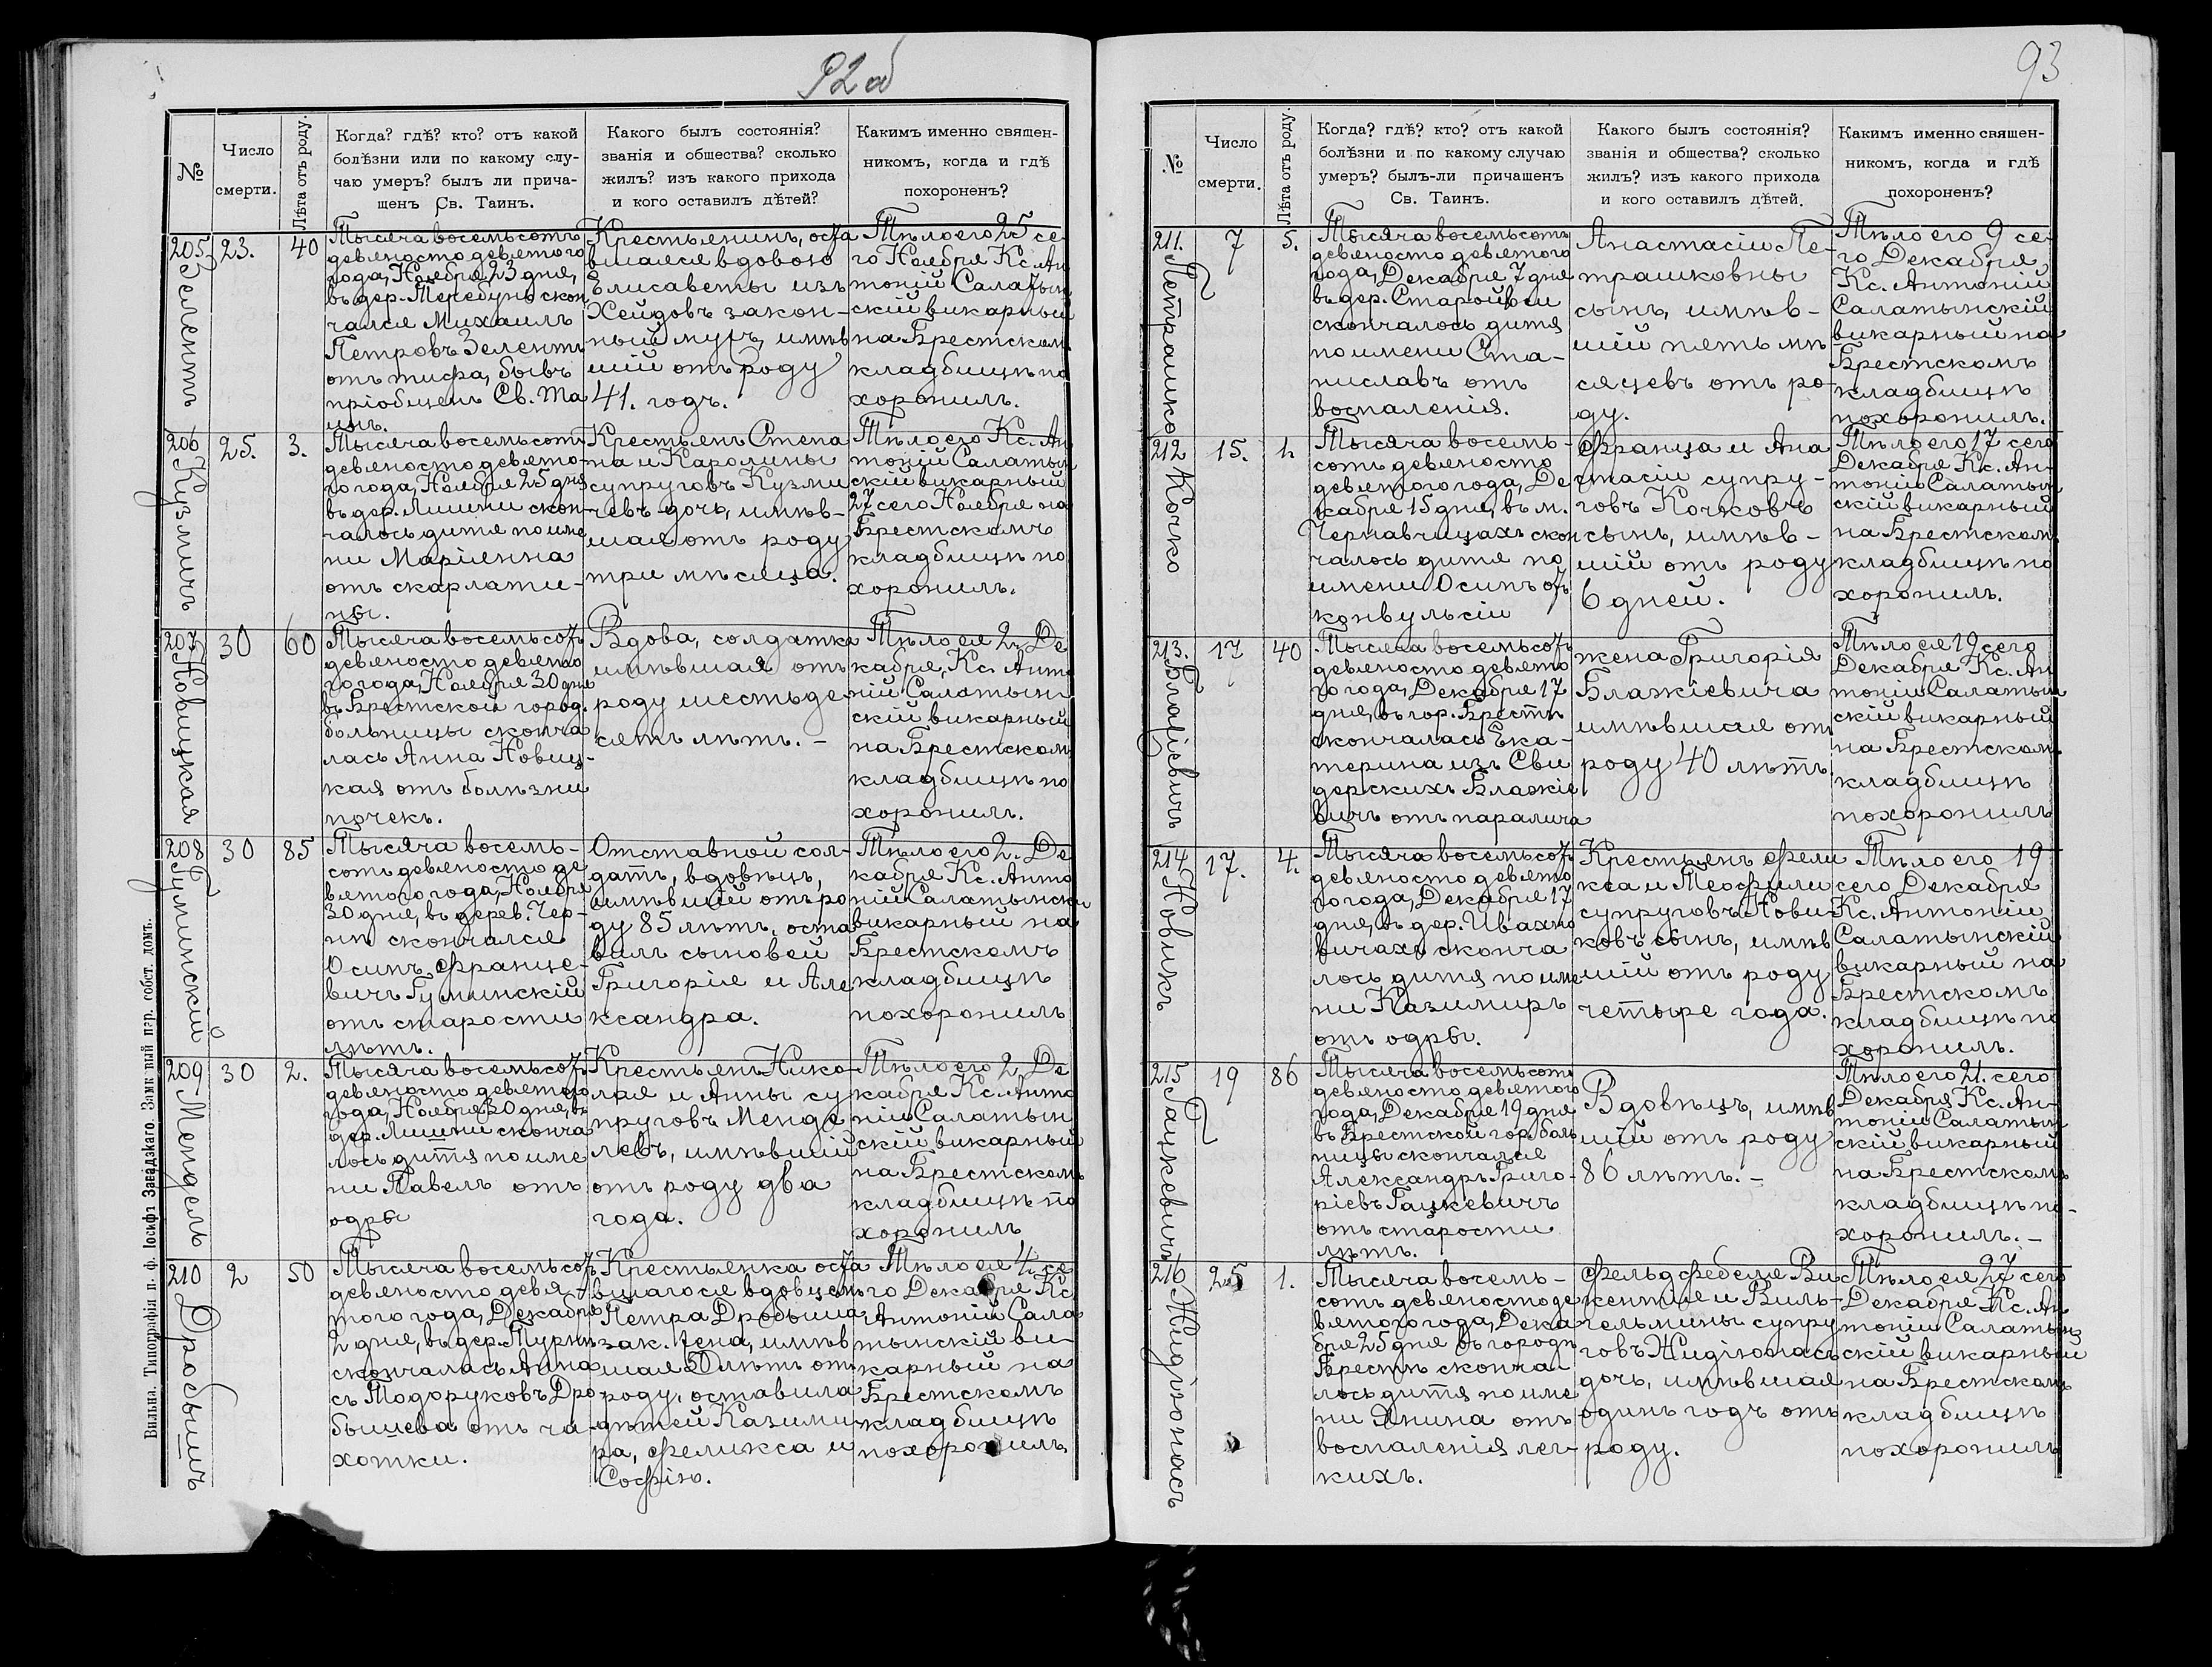 92об
№
Число
смерти.
Лѣта отъ роду.
Когда? гдѣ? кто? отъ какой
болѣзни или по какому слу-
чаю умеръ? былъ ли прича-
щенъ Св. Таинъ.
Какого былъ состоянія?
званія и общества? сколько
жилъ? изъ какого прихода
и кого оставилъ дѣтей?
Какимъ именно священ-
никомъ, когда и гдѣ
похороненъ?
205
Зелентъ
23.
40
Тысяча восемьсотъ
девяносто девятого
года, Ноября 23 дня,
въ дер. Теребунь скон
чался Михаилъ
Петровъ Зелентъ
отъ тифа, бывъ
пріобщенъ Св. Та
инъ.
Крестьянинъ, оста
вшаяся вдовою
Елисаветы изъ
Хейдовъ закон-
ный мужъ, имѣв
шій отъ роду
41. годъ.
Тѣло его 25 се
го Ноября Кс. Ан
тоній Салатын
скій викарный
на Брестском
кладбищѣ по
хоронилъ.
206
Кузмичъ
25.
3.
Тысяча восемьсотъ
девяносто девято-
го года, Ноября 25 дня
въ дер. Лишни скон-
чалось дитя по име
ни Маріянна
отъ скарлати-
ны.
Крестьянъ Степа
на и Каролины
супруговъ Кузми
чевъ дочь, имѣв-
шая отъ роду
три мѣсяца.
Тѣло его Кс. Ан
тоній Салатын
скій викарный
27 сего Ноября на
Брестскомъ
кладбищѣ по
хоронилъ.
207
Новицкая
30
60
Тысяча восемьсотъ
девяносто девято
го года, Ноября 30 дня
въ Брестской город.
больницы сконча
лась Анна Новиц-
кая отъ болѣзни
почекъ.
Вдова, солдатка
имѣвшая отъ
роду шестьде
сятъ лѣтъ. -
Тѣло ея 2. Де
кабря, Кс. Анто
ній Салатын-
скій викарный
на Брестском
кладбищѣ по
хоронилъ.
208
Гуминскій
30
85
Тысяча восемь-
сотъ девяносто де
вятого года, Ноября
30 дня, въ дерев. Чер-
нѣ скончался
Осипъ Францe-
вичъ Гуминскій
отъ старости
лѣтъ.
Отставной сол-
датъ, вдовецъ,
имѣвшій отъ ро
ду 85 лѣтъ, оста
вилъ сыновей
Григорія и Але
ксандра.
Тѣло его 2. Де
кабря Кс. Анто
ній Салатынскій
викарный на
Брестскомъ
кладбищѣ
похоронилъ
209
Мендель
30
2.
Тысяча восемьсотъ
девяносто девятого
года, Ноября 30 дня, въ
дер. Лишни сконча
лось дитя по име
ни Павелъ отъ
одры
Крестьянъ Нико-
лая и Анны су
пруговъ Менде
левъ, имѣвшій
отъ роду два
года.
Тѣло его 2 Де
кабря Кс. Анто
ній Салатын
скій викарный
на Брестскомъ
кладбищѣ по
хоронилъ
210
Дробышъ
2
50
Тысяча восемьсотъ
девяносто девя-
того года, Декабря
2 дня, въ дер. Турни
скончалась Анна
съ Тодоруковъ Дро
бышева отъ ча-
хотки.
Крестьянка оста
вшагося вдовцемъ
Петра Дробыша
зак. жена, имѣв
шая 50 лѣтъ отъ
роду, оставила
дѣтей Казими-
ра, Феликса и
Софію.
Тѣло ея 4. се
го Декабря Кс.
Антоній Сала
тынскій ви-
карный на
Брестскомъ
кладбищѣ
похоронилъ
Вильна. Типографія п. ф. Іосифъ Завадзкаго. Замк ный пер. собст. домъ.
93
№
Число
смерти.
Лѣта отъ роду.
Когда? гдѣ? кто? отъ какой
болѣзни и по какому случаю
умеръ? былъ-ли причащенъ
Св. Таинъ.
Какого былъ состоянія?
званія и общества? сколько
жилъ? изъ какого прихода
и кого оставилъ дѣтей.
Какимъ именно священ-
никомъ, когда и гдѣ
похороненъ?
211.
Петрашко
7
5.
Тысяча восемьсотъ
девяносто девятого
года, Декабря 7 дня
въ дер. Старойвси
скончалось дитя
по имени Ста-
ниславъ отъ
воспаленія.
Анастасіи Пе-
трашковны
сынъ, имѣв-
шій пять мѣ
сяцевъ отъ ро-
ду.
Тѣло его 9 се-
го Декабря
Кс. Антоній
Салатынскій
викарный на
Брестскомъ
кладбищѣ
похоронилъ.
212
Кочко
15.
1.
Тысяча восемь-
сотъ девяносто
девятого года, Де
кабря 15 дня, въ м.
Чернавчицахъ скон
чалось дитя по
имени Осипъ отъ
конвульсіи
Франца и Ана
стасіи супру-
говъ Кочковъ
сынъ, имѣв-
шій отъ роду
6 дней.
Тѣло его 17 сего
Декабря Кс. Ан-
тоній Салатын
скій викарный
на Брестском
кладбищѣ по
хоронилъ.
213.
Блажіевичъ
17
40
Тысяча восемьсотъ
девяносто девято
го года, Декабря 17
дня, въ гор. Брестѣ
скончалась Ека-
терина изъ Сви
дерскихъ Блажіе
вичъ отъ паралича
жена Григорія
Блажіевича
имѣвшая отъ
роду 40 лѣтъ.
Тѣло ея 19 сего
Декабря Кс. Ан
тоній Салатын
скій викарный
на Брестском
кладбищѣ
похоронилъ
214
Новикъ
17.
4.
Тысяча восемьсотъ
девяносто девято
го года, Декабря 17
дня, въ дер. Ивахно
вичахъ сконча
лось дитя по име
ни Казимиръ
отъ одры.
Крестьянъ Фели
кса и Теофили
супруговъ Нови-
ковъ сынъ, имѣв
шій отъ роду
четыре года.
Тѣло его 19
сего Декабря
Кс. Антоній
Салатынскій
викарный на
Брестскомъ
кладбищѣ по
хоронилъ.
215
Гацкевичъ
19
86
Тысяча восемьсотъ
девяносто девятого
года, Декабря 19 дня
въ Брестской гор. боль
ницы скончался
Александръ Григо-
ріевъ Гацкевичъ
отъ старости
лѣтъ.
Вдовецъ, имѣв
шій отъ роду
86 лѣтъ. -
Тѣло его 21. сего
Декабря Кс. Ан-
тоній Салатын
скій викарный
на Брестскомъ
кладбищѣ по-
хоронилъ. -
216
Жидзюнасъ
25
1.
Тысяча восемь-
сотъ девяносто де
вятого года, Дека
бря 25 дня въ городѣ
Брестѣ сконча-
лось дитя по име
ни Янина отъ
воспаленія лег-
кихъ.
Фельдфебеля Ви
кентія и Виль-
гельмины супру
говъ Жидзюнасъ
дочь, имѣвшая
одинъ годъ отъ
роду.
Тѣло ея 27 сего
Декабря Кс. Ан
тоній Салатын
скій викарный
на Брестскомъ
кладбищѣ
похоронилъ